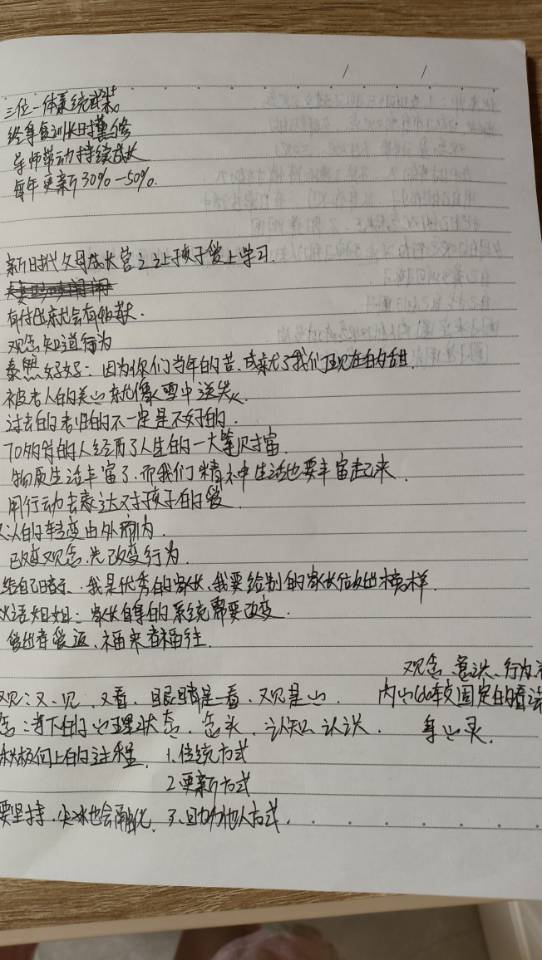 三位一体系统
经等复训长时懂
导师带动持续成长
每年更新30%-50%.
新时代父母成长营之让孩子爱上学习.
有付出就会有收获.
观念 知道 行为
泰然好好:因为你们当年的苦,成就了我们现在的甜.
被老人的关心就像雪中送炭.
过去的老旧的不一定是不好的.
70的人经历了人生的一大笔财富.
物质生活丰富了,而我们精神生活也要丰富起来.
用行动去表达对孩子的爱.
人的转变由外而内.
改变观念,先改变行为.
给自己暗示,我是优秀的家长,我要给别的家长做出榜样.
姐姐:家长自身的系统需要改变.
爱出者爱返,福来者福往.
观念、意识、行为
观:又、见,又看,且是看,观是心. 内心比较固定的看法
念:当下的心理状态,念头,认知、认识. 身心灵.
积极向上的过程. 1.传统方式
2.更新方式
要坚持.尖冰也会融化. 3.助力他人方式.